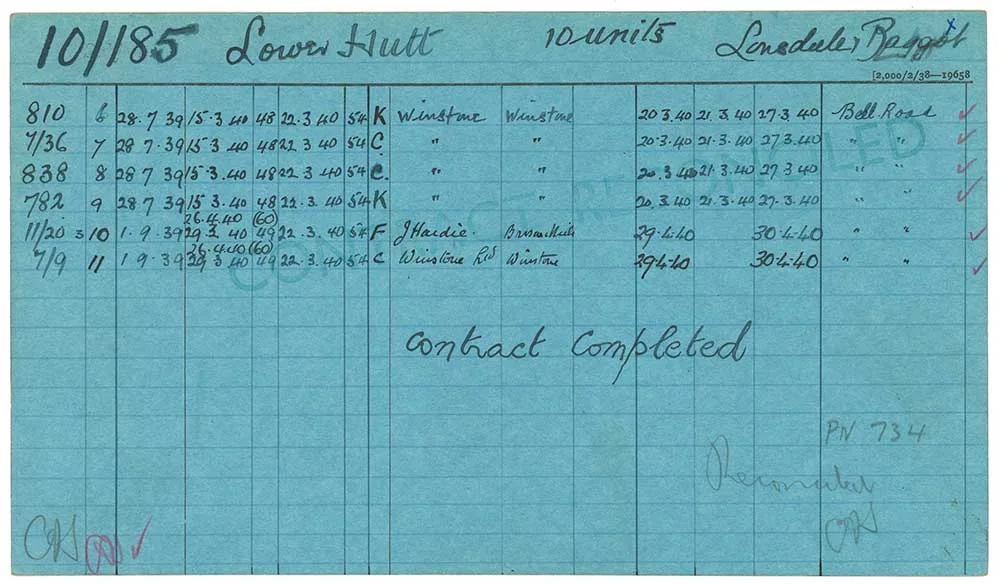 10/185 Lower Hutt 10 units Lonsdale & Baggot x
[2,000/2/38—19658
810 6 28.7.39 15.3.40 48 22.3.40 54 K Winstone Winstone 20.3.40 21.3.40 27.3.40 Bell Road ✓
7/36 7 28.7.39 15.3.40 48 22.3.40 54 C " " 20.3.40 21.3.40 27.3.40 " " ✓
838 8 28.7.39 15.3.40 48 22.3.40 54 C. " " 20.3.40 21.3.40 27.3.40 " " ✓
782 9 28.7.39 15.3.40 48 22.3.40 54 K " " 20.3.40 21.3.40 27.3.40 " " ✓
26.4.40 (60)
11/20 3 10 1.9.39 29.3.40 49 22.3.40 54 F J Hardie. 29.4.40 30.4.40 " " ✓
26.4.40 (60)
7/9 11 1.9.39 29.3.40 49 22.3.40 54 C Winstone Ltd Winstone 29.4.40 30.4.40 " " ✓
CONTRACT RECONCILED
Contract Completed
PN 734
Reconciled